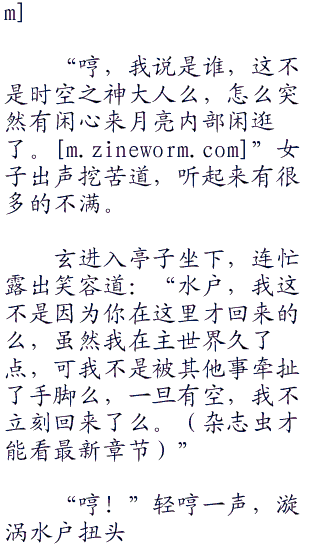 m]
“哼，我说是谁，这不
是时空之神大人么，怎么突
然有闲心来月亮内部闲逛
了。[m.zineworm.com]”女
子出声挖苦道，听起来有很
多的不满。
玄进入亭子坐下，连忙
露出笑容道：“水户，我这
不是因为你在这里才回来的
么，虽然我在主世界久了
点，可我不是被其他事牵扯
了手脚么，一旦有空，我不
立刻回来了么。（杂志虫才
能看最新章节）”
“哼！”轻哼一声，漩
涡水户扭头